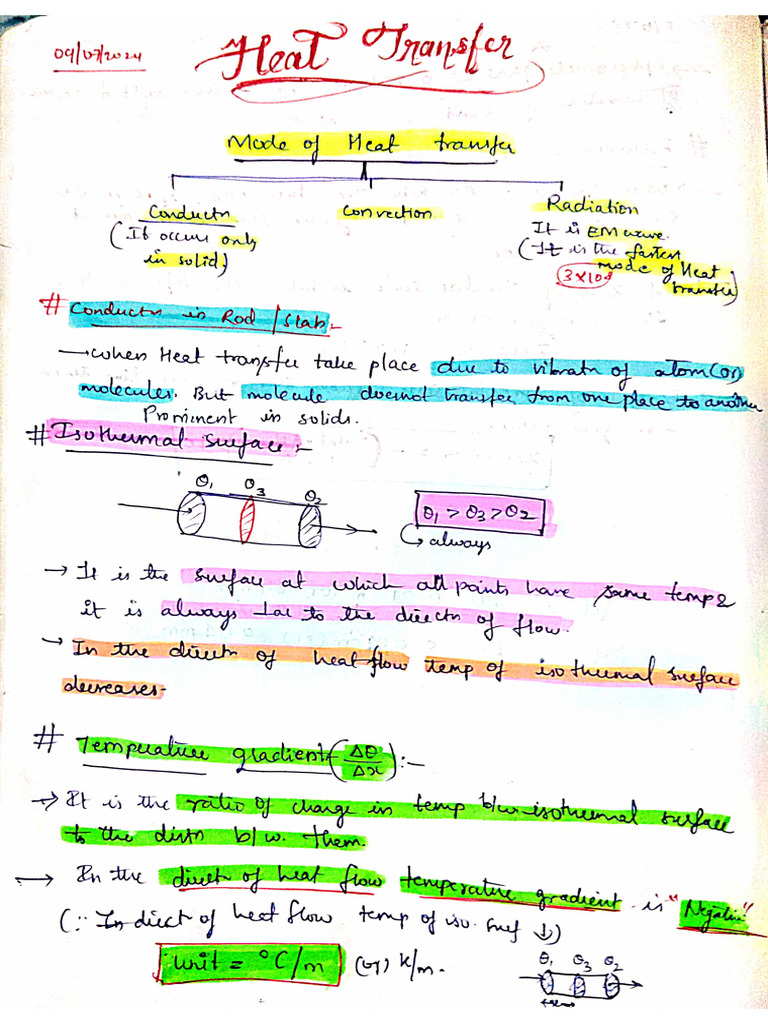 09/07/2024
Heat Transfer
Mode of Heat transfer
Conductn
(It occurs only
in solid)
Convection
Radiation
It is EM wave.
(It is the fastest
mode of Heat
transfer)
3×10⁸
# Conductn in Rod/Slab:-
→ When Heat transfer take place due to vibratn of atom (or)
molecules. But molecule doesnot transfer from one place to another
Prominent in solids.
# Isothermal Surface:-
θ₁ θ₃ θ₂
θ₁ > θ₃ > θ₂
always
→ It is the surface at which all points have same temp &
it is always ⊥ar to the directn of flow.
→ In the directn of heat flow temp of isothermal surface
decreases.
# Temperature gradient (Δθ/Δx) :-
→ It is the ratio of change in temp b/w isothermal surface
to the distn b/w them.
→ In the direct of heat flow temperature gradient is "Negative"
(∵ In direct of heat flow temp of iso. surf ↓)
Unit = °C/m (or) K/m.
θ₁ θ₃ θ₂